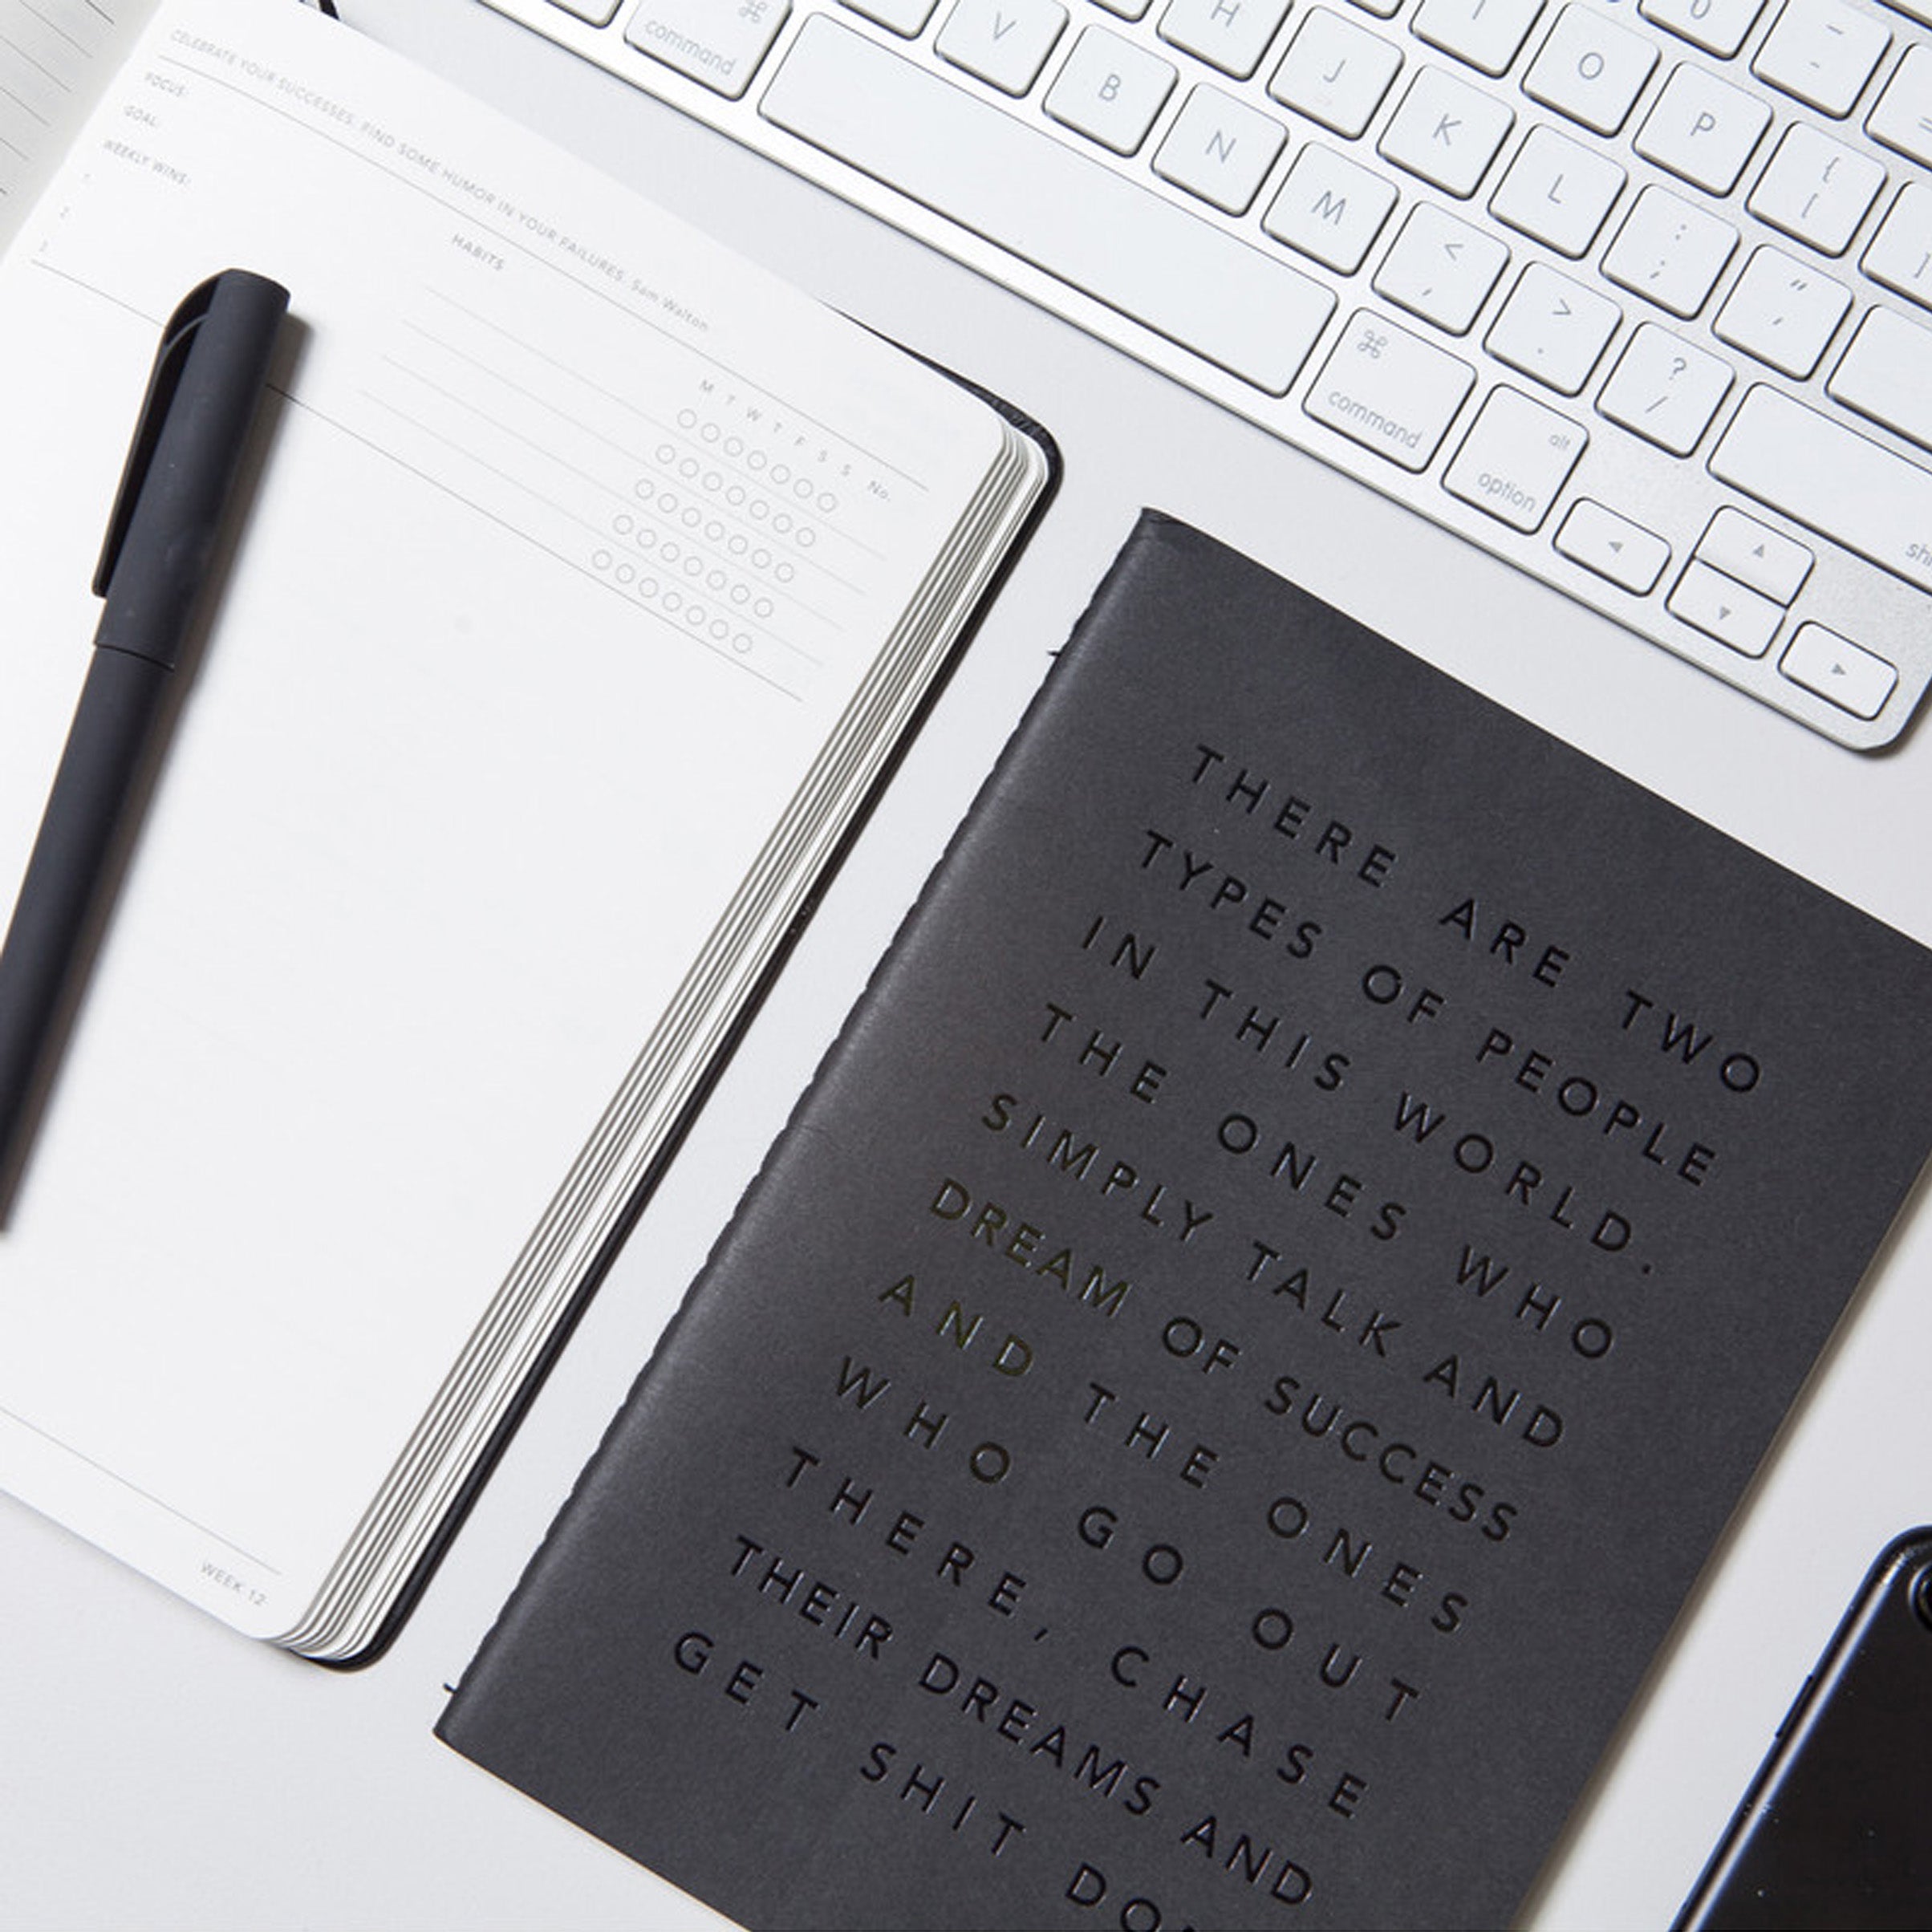 CELEBRATE YOUR SUCCESSES. FIND SOME HUMOR IN YOUR FAILURES. Sam Walton
FOCUS:
GOAL:
WEEKLY WINS:
1
2
3
HABITS
M T W T F S S No.
WEEK 12
⌘
command
V
B
N
M
H
J
K
L
O
P
0
-
{
[
:
;
"
'
<
,
>
.
?
/
⌘
command
alt
option
THERE ARE TWO
TYPES OF PEOPLE
IN THIS WORLD.
THE ONES WHO
SIMPLY TALK AND
DREAM OF SUCCESS
AND THE ONES
WHO GO OUT
THERE, CHASE
THEIR DREAMS AND
GET SHIT